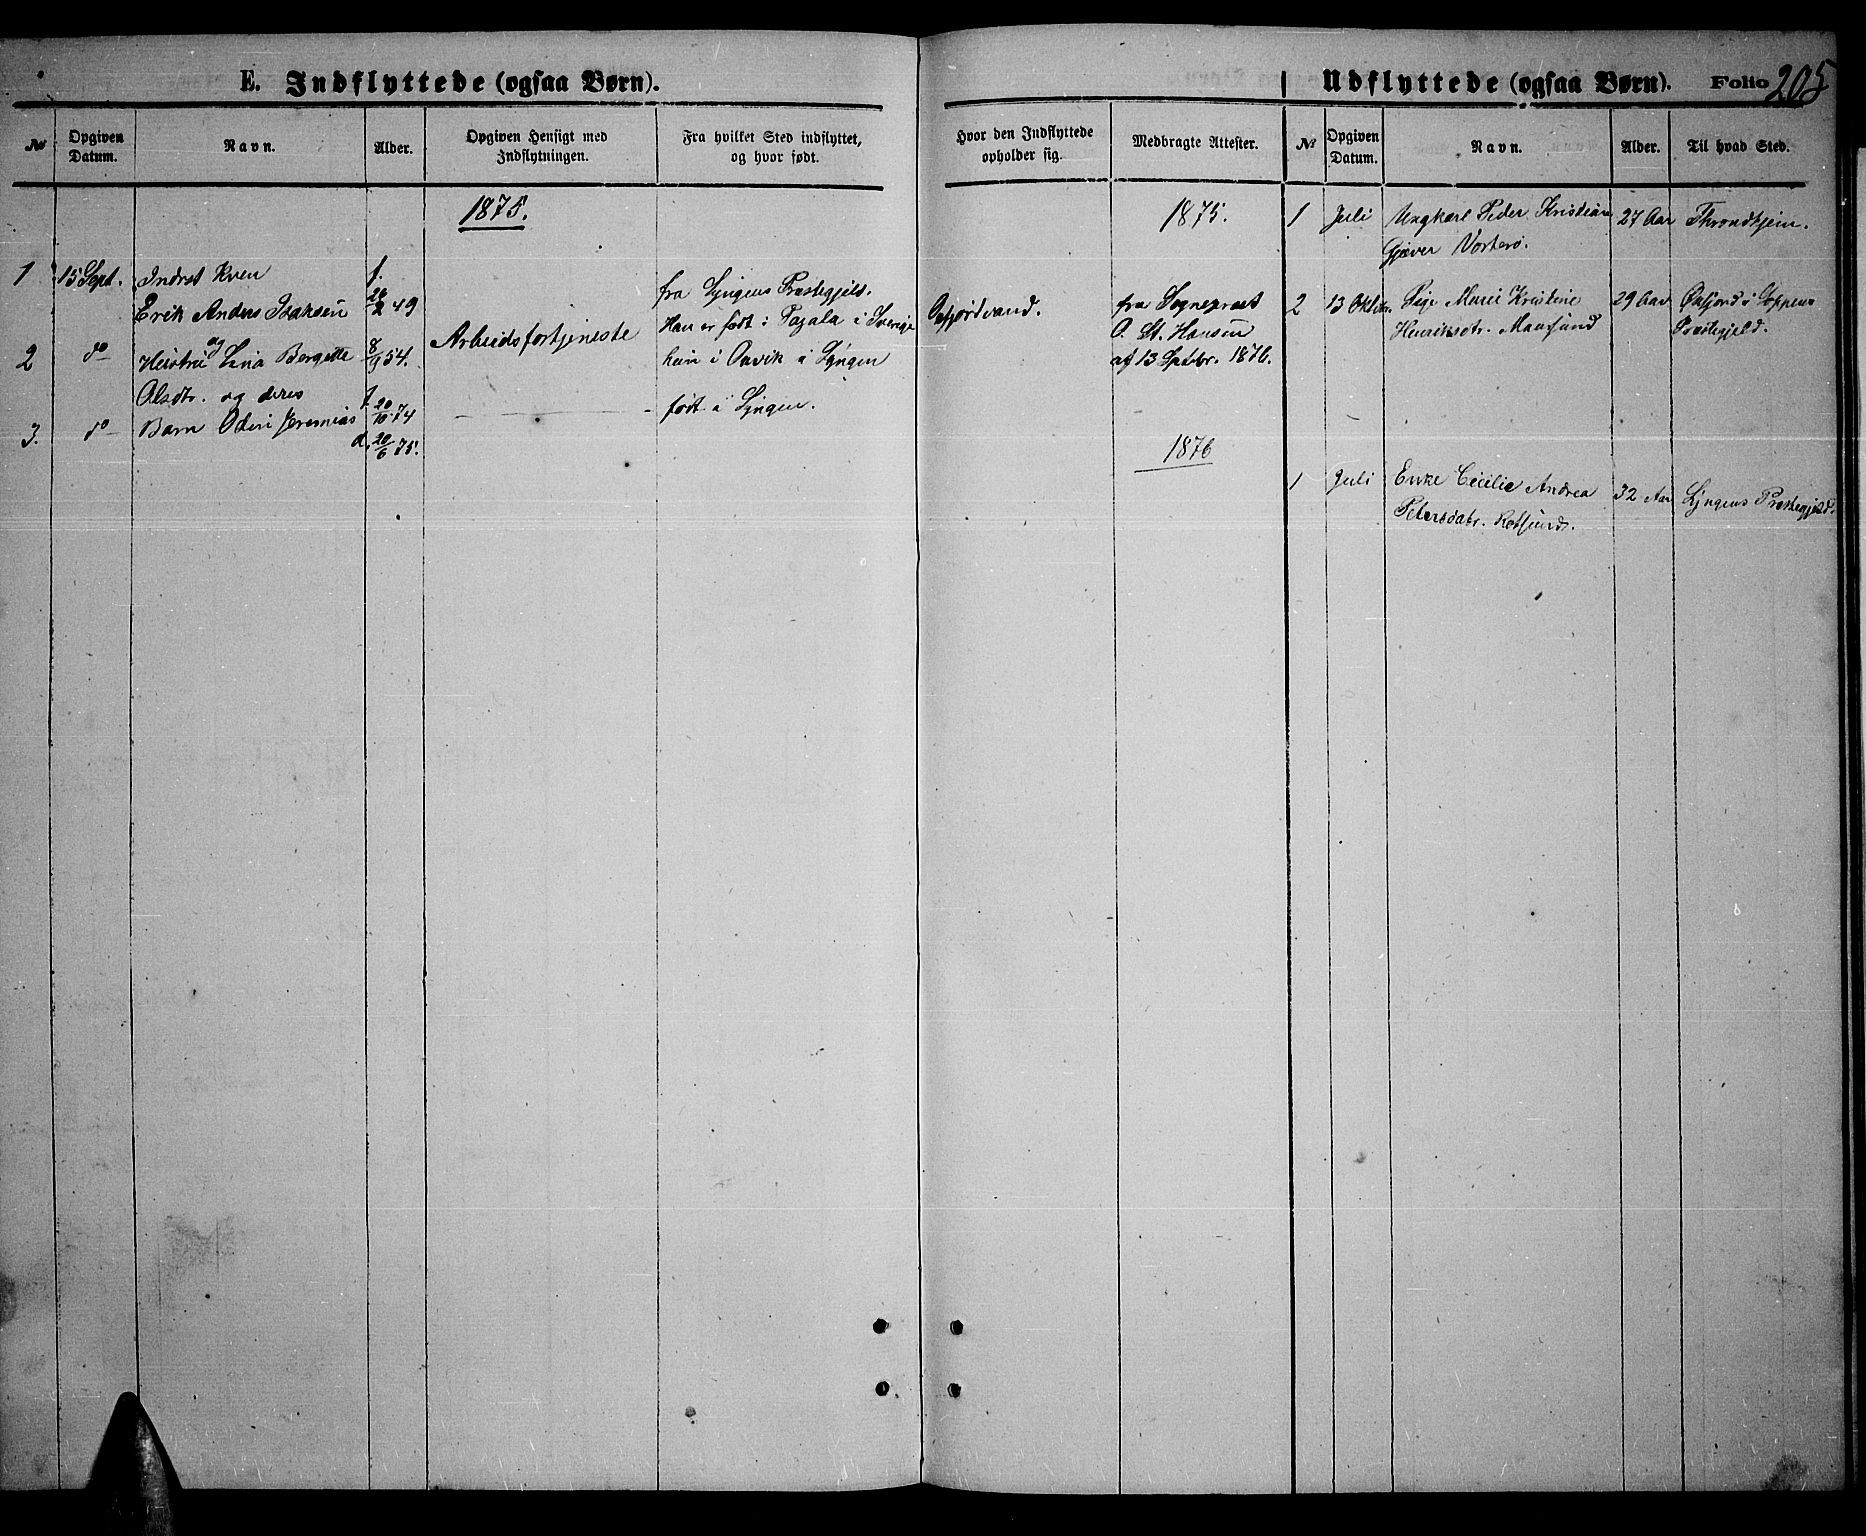 E. Indflyttede (ogsaa Børn).
№
Opgiven Datum.
Navn.
Alder.
Opgiven Hensigt med Indflytningen.
Fra hvilket Sted indflyttet, og hvor født.
1875.
1 15 Sept. Indrst Kven f.
Erik Anders Isaksen 26/2 49
fra Lyngens Præstegjeld.
Han er født i Pajala i Sverige
Arbeidsfortjeneste
2 do og Lina Bergette 8/9 54.
hun i Oxvik i Lyngen
Alsdtr. og deres
3. do Barn Oderi Jeremias f. 20/10 74
d. 20/6 75.
født i Lyngen.
Udflyttede (ogsaa Børn). Folio 205
Hvor den Indflyttede opholder sig.
Medbragte Attester.
№
Opgiven Datum.
Navn.
Alder.
Til hvad Sted.
1875.
1 Juli Ungkarl Peder Kristian 27 Aar Throndhjem.
Gjæver Vorterø.
Oxfjordvand.
fra Sogneprest
O. St. Hansen
af 13 Septbr. 1876.
2 13 Oktbr. Pige Marie Kristine 29 Aar Øxfjord i Loppens
Henriksdtr. Maursund Præstegjeld.
1876
1 Juli Enke Cecilie Andrea 32 Aar Lyngens Præstegjeld.
Petersdatr. Rotsund.